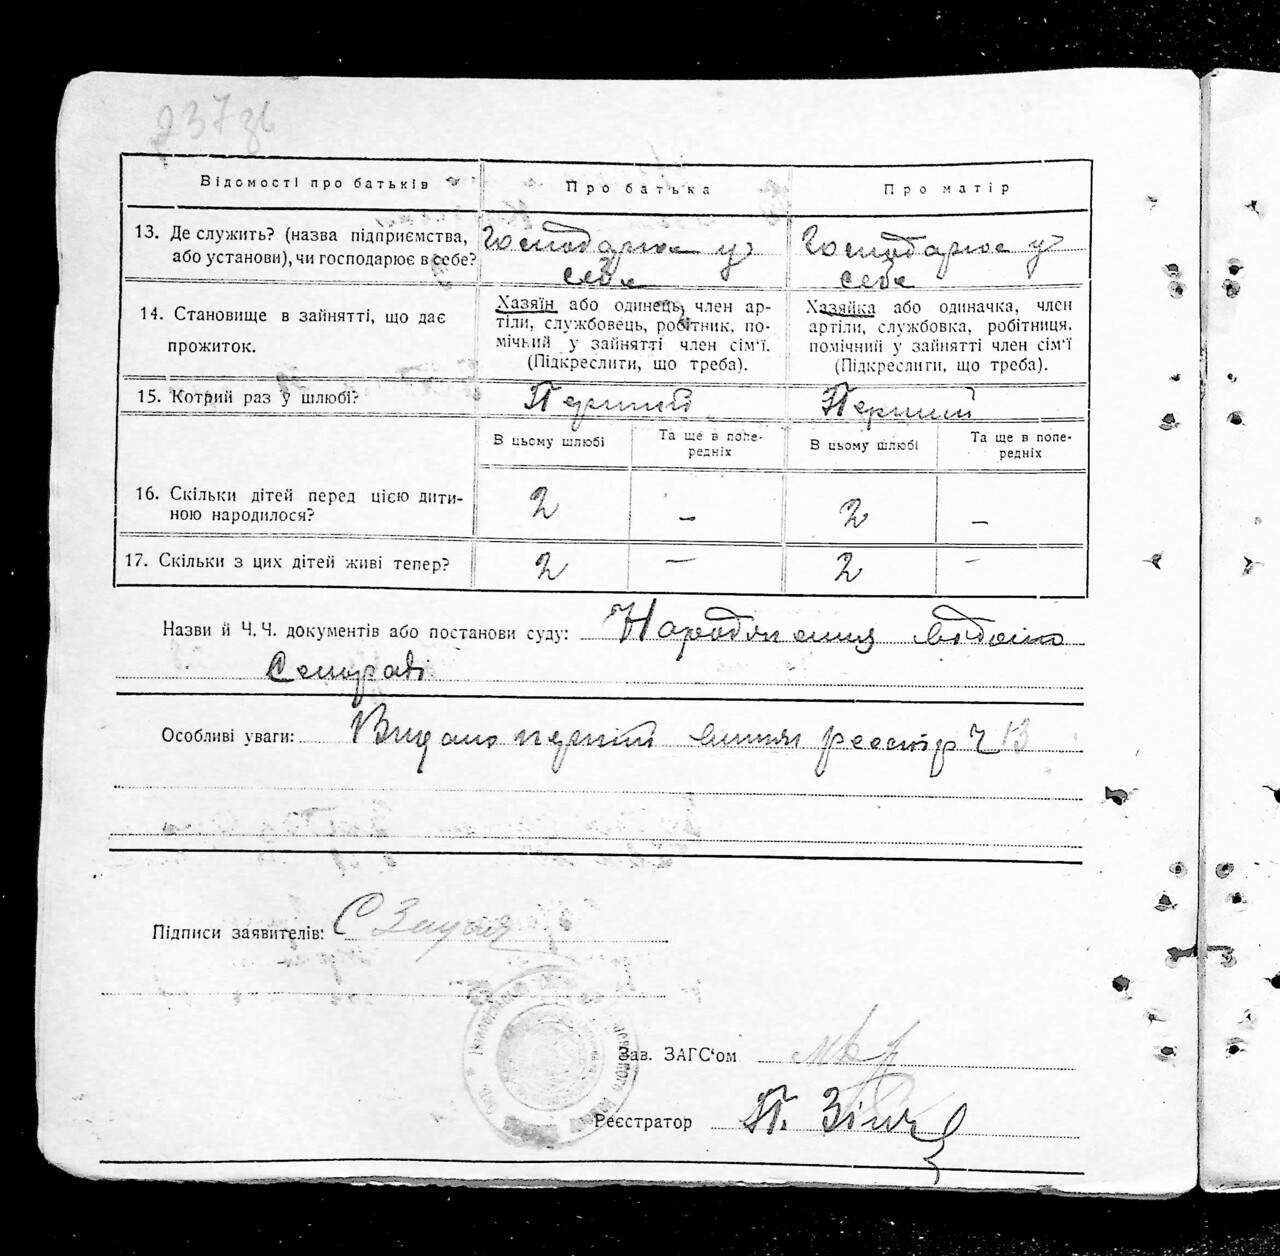 237зв
Відомості про батьків
Про батька
Про матір
13. Де служить? (назва підприємства,
або установи), чи господарює в себе?
Господарює у
себе
Господарює у
себе
14. Становище в зайнятті, що дає
прожиток.
Хазяїн або одинець, член ар-
тіли, службовець, робітник, по-
мічний у зайнятті член сім'ї.
(Підкреслити, що треба).
Хазяйка або одиначка, член
артіли, службовка, робітниця,
помічний у зайнятті член сім'ї
(Підкреслити, що треба).
15. Котрий раз у шлюбі?
Перший
Перший
В цьому шлюбі
Та ще в попе-
редніх
В цьому шлюбі
Та ще в попе-
редніх
16. Скільки дітей перед цією дити-
ною народилося?
2
–
2
–
17. Скільки з цих дітей живі тепер?
2
–
2
–
Назви й Ч. Ч. документів або постанови суду: 
Сельраді
Особливі уваги: Видано перший реєстр Ч 13
Підписи заявителів: С
Зав. ЗАГС'ом
Реєстратор П.